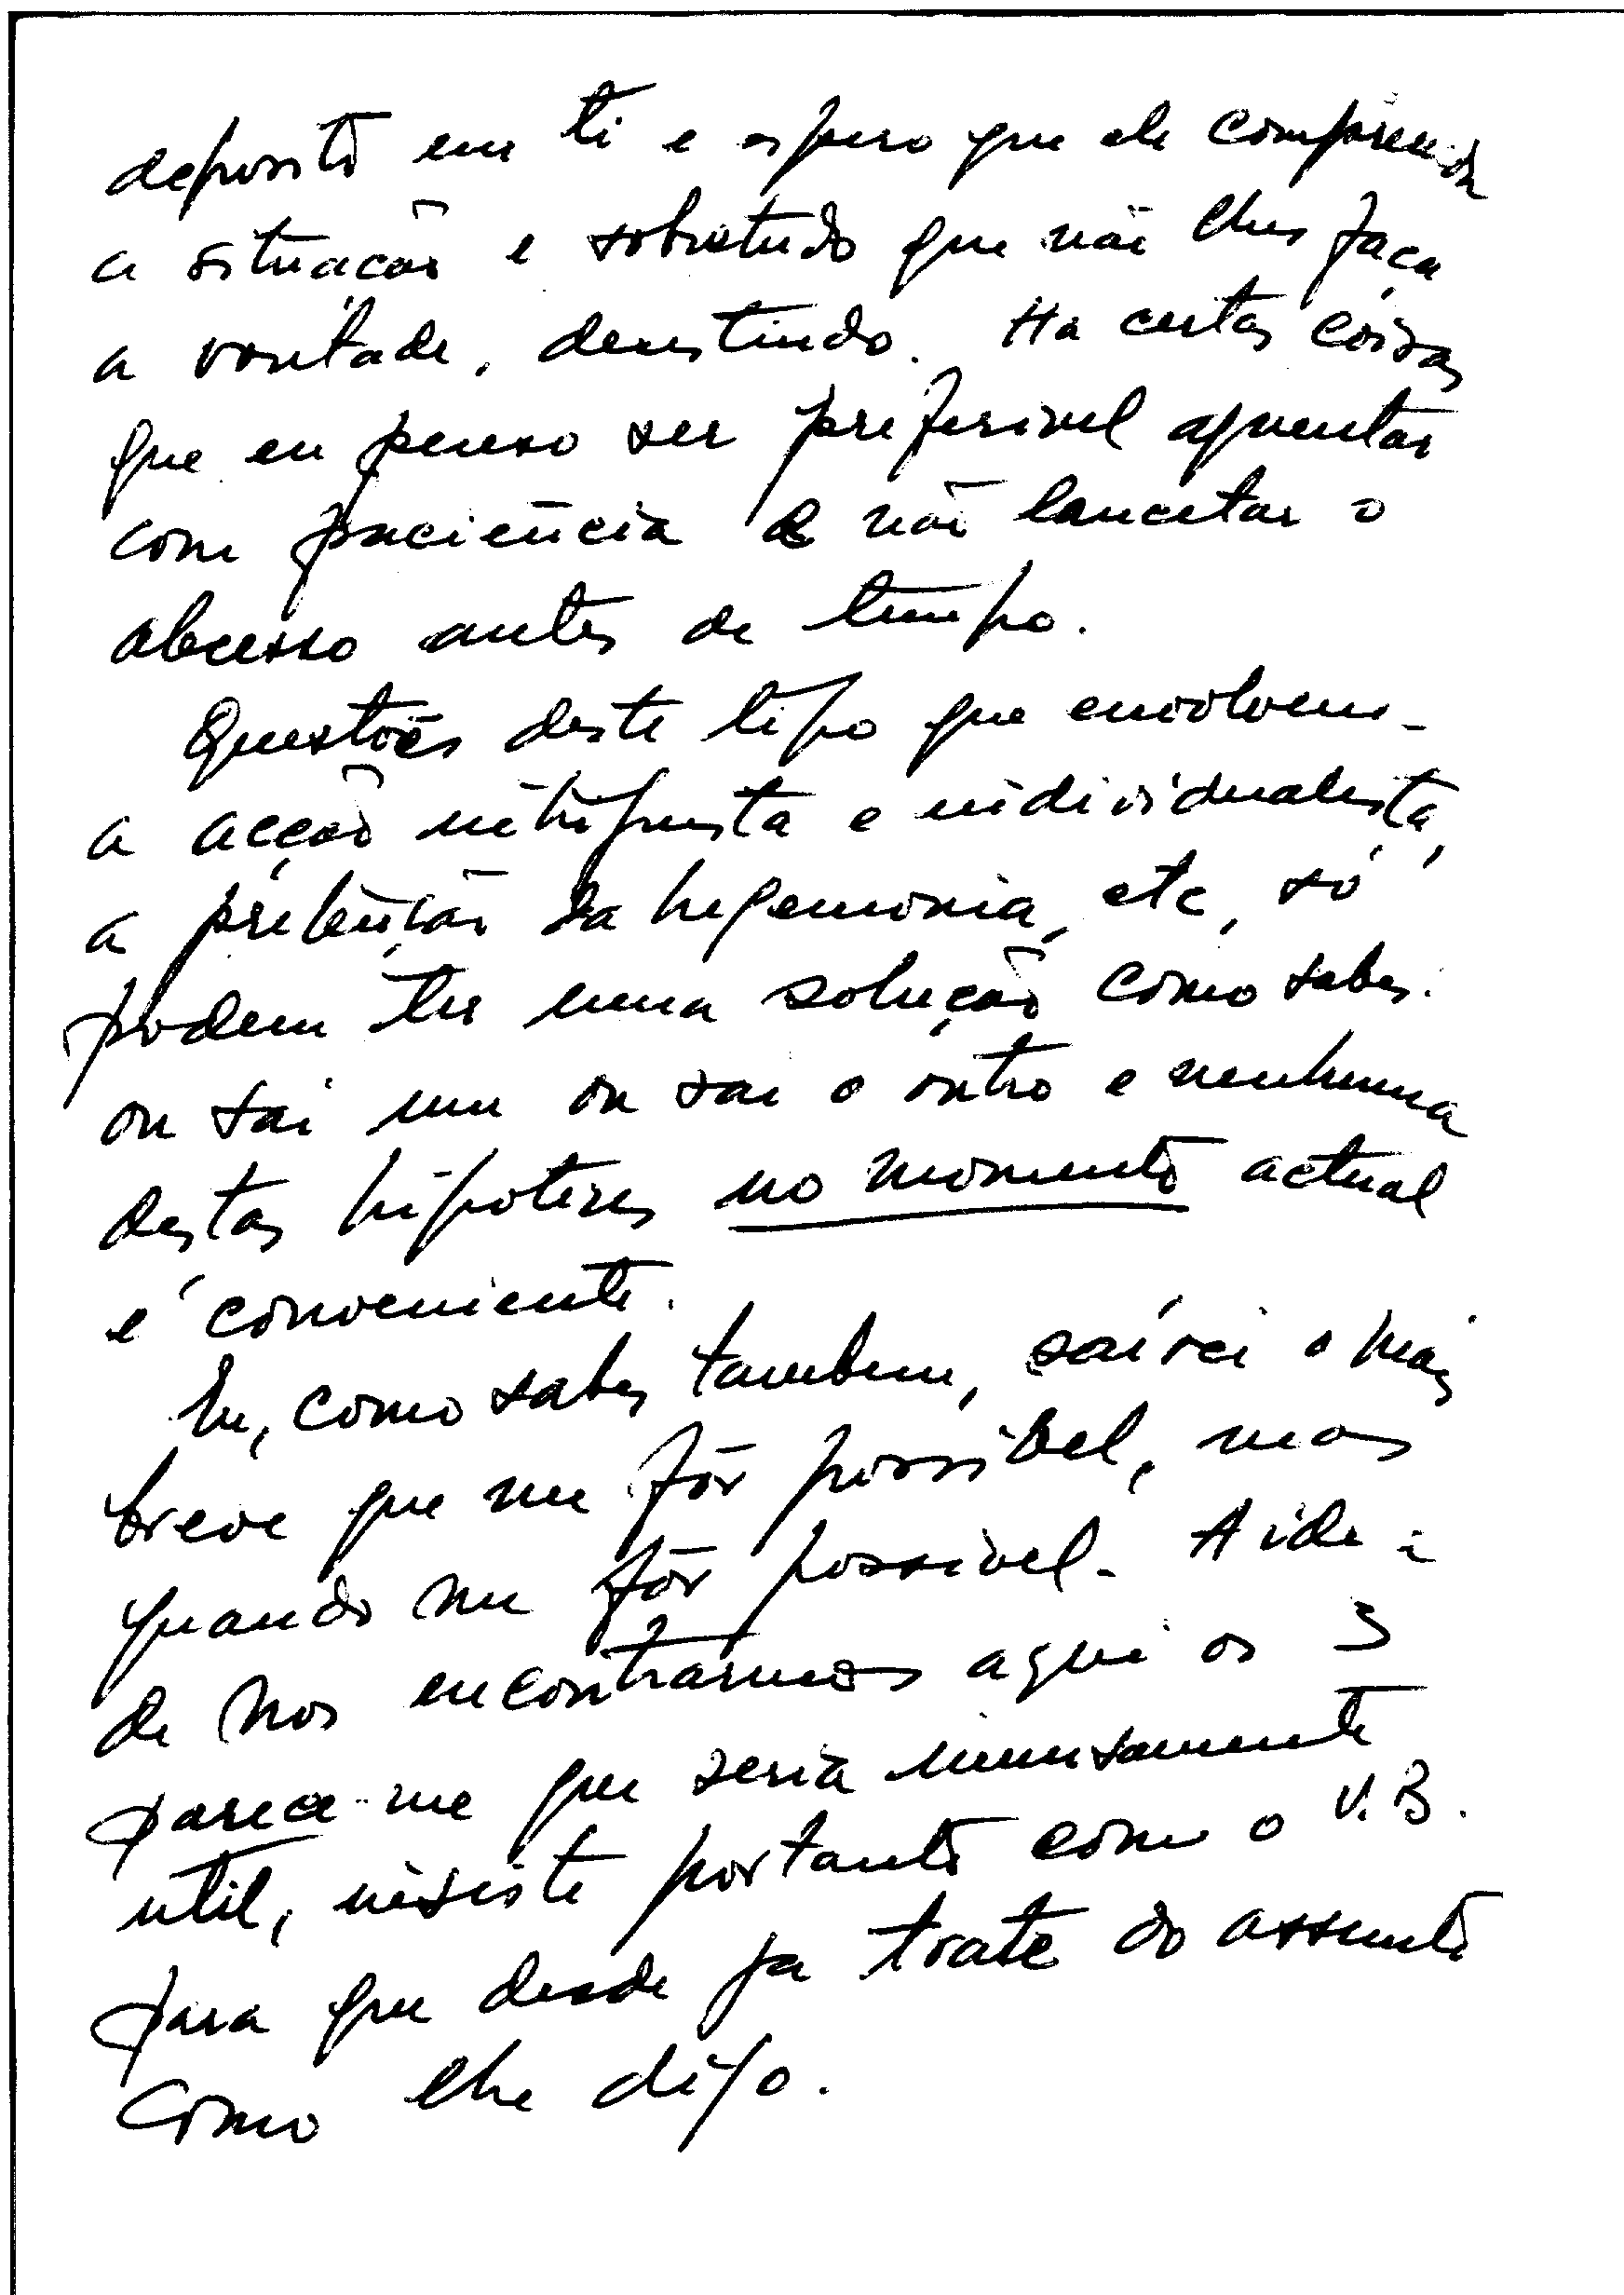 deposito em ti e espero que ele compreenda
a situação e sobretudo que não lhes faça
a vontade, desistindo. Ha certas coisas
que eu penso ser preferivel aguentar
com paciência e não lancetar o
abcesso antes de tempo.
Questões deste tipo que envolvem
a acção intriguista e individualista,
a pretenção da hegemonia, etc, só
podem ter uma solução como sabes:
ou sai um ou sai o outro e nenhuma
destas hipoteses no momento actual
é conveniente.
Eu, como sabes tambem, saírei o mais
breve que me fôr possivel, mas
quando me fôr possivel. A ideia
de nos encontrarmos aqui os 3
parece-me que seria imensamente
util, insiste portanto com o V.B.
para que desde ja trate do assunto
como lhe digo.